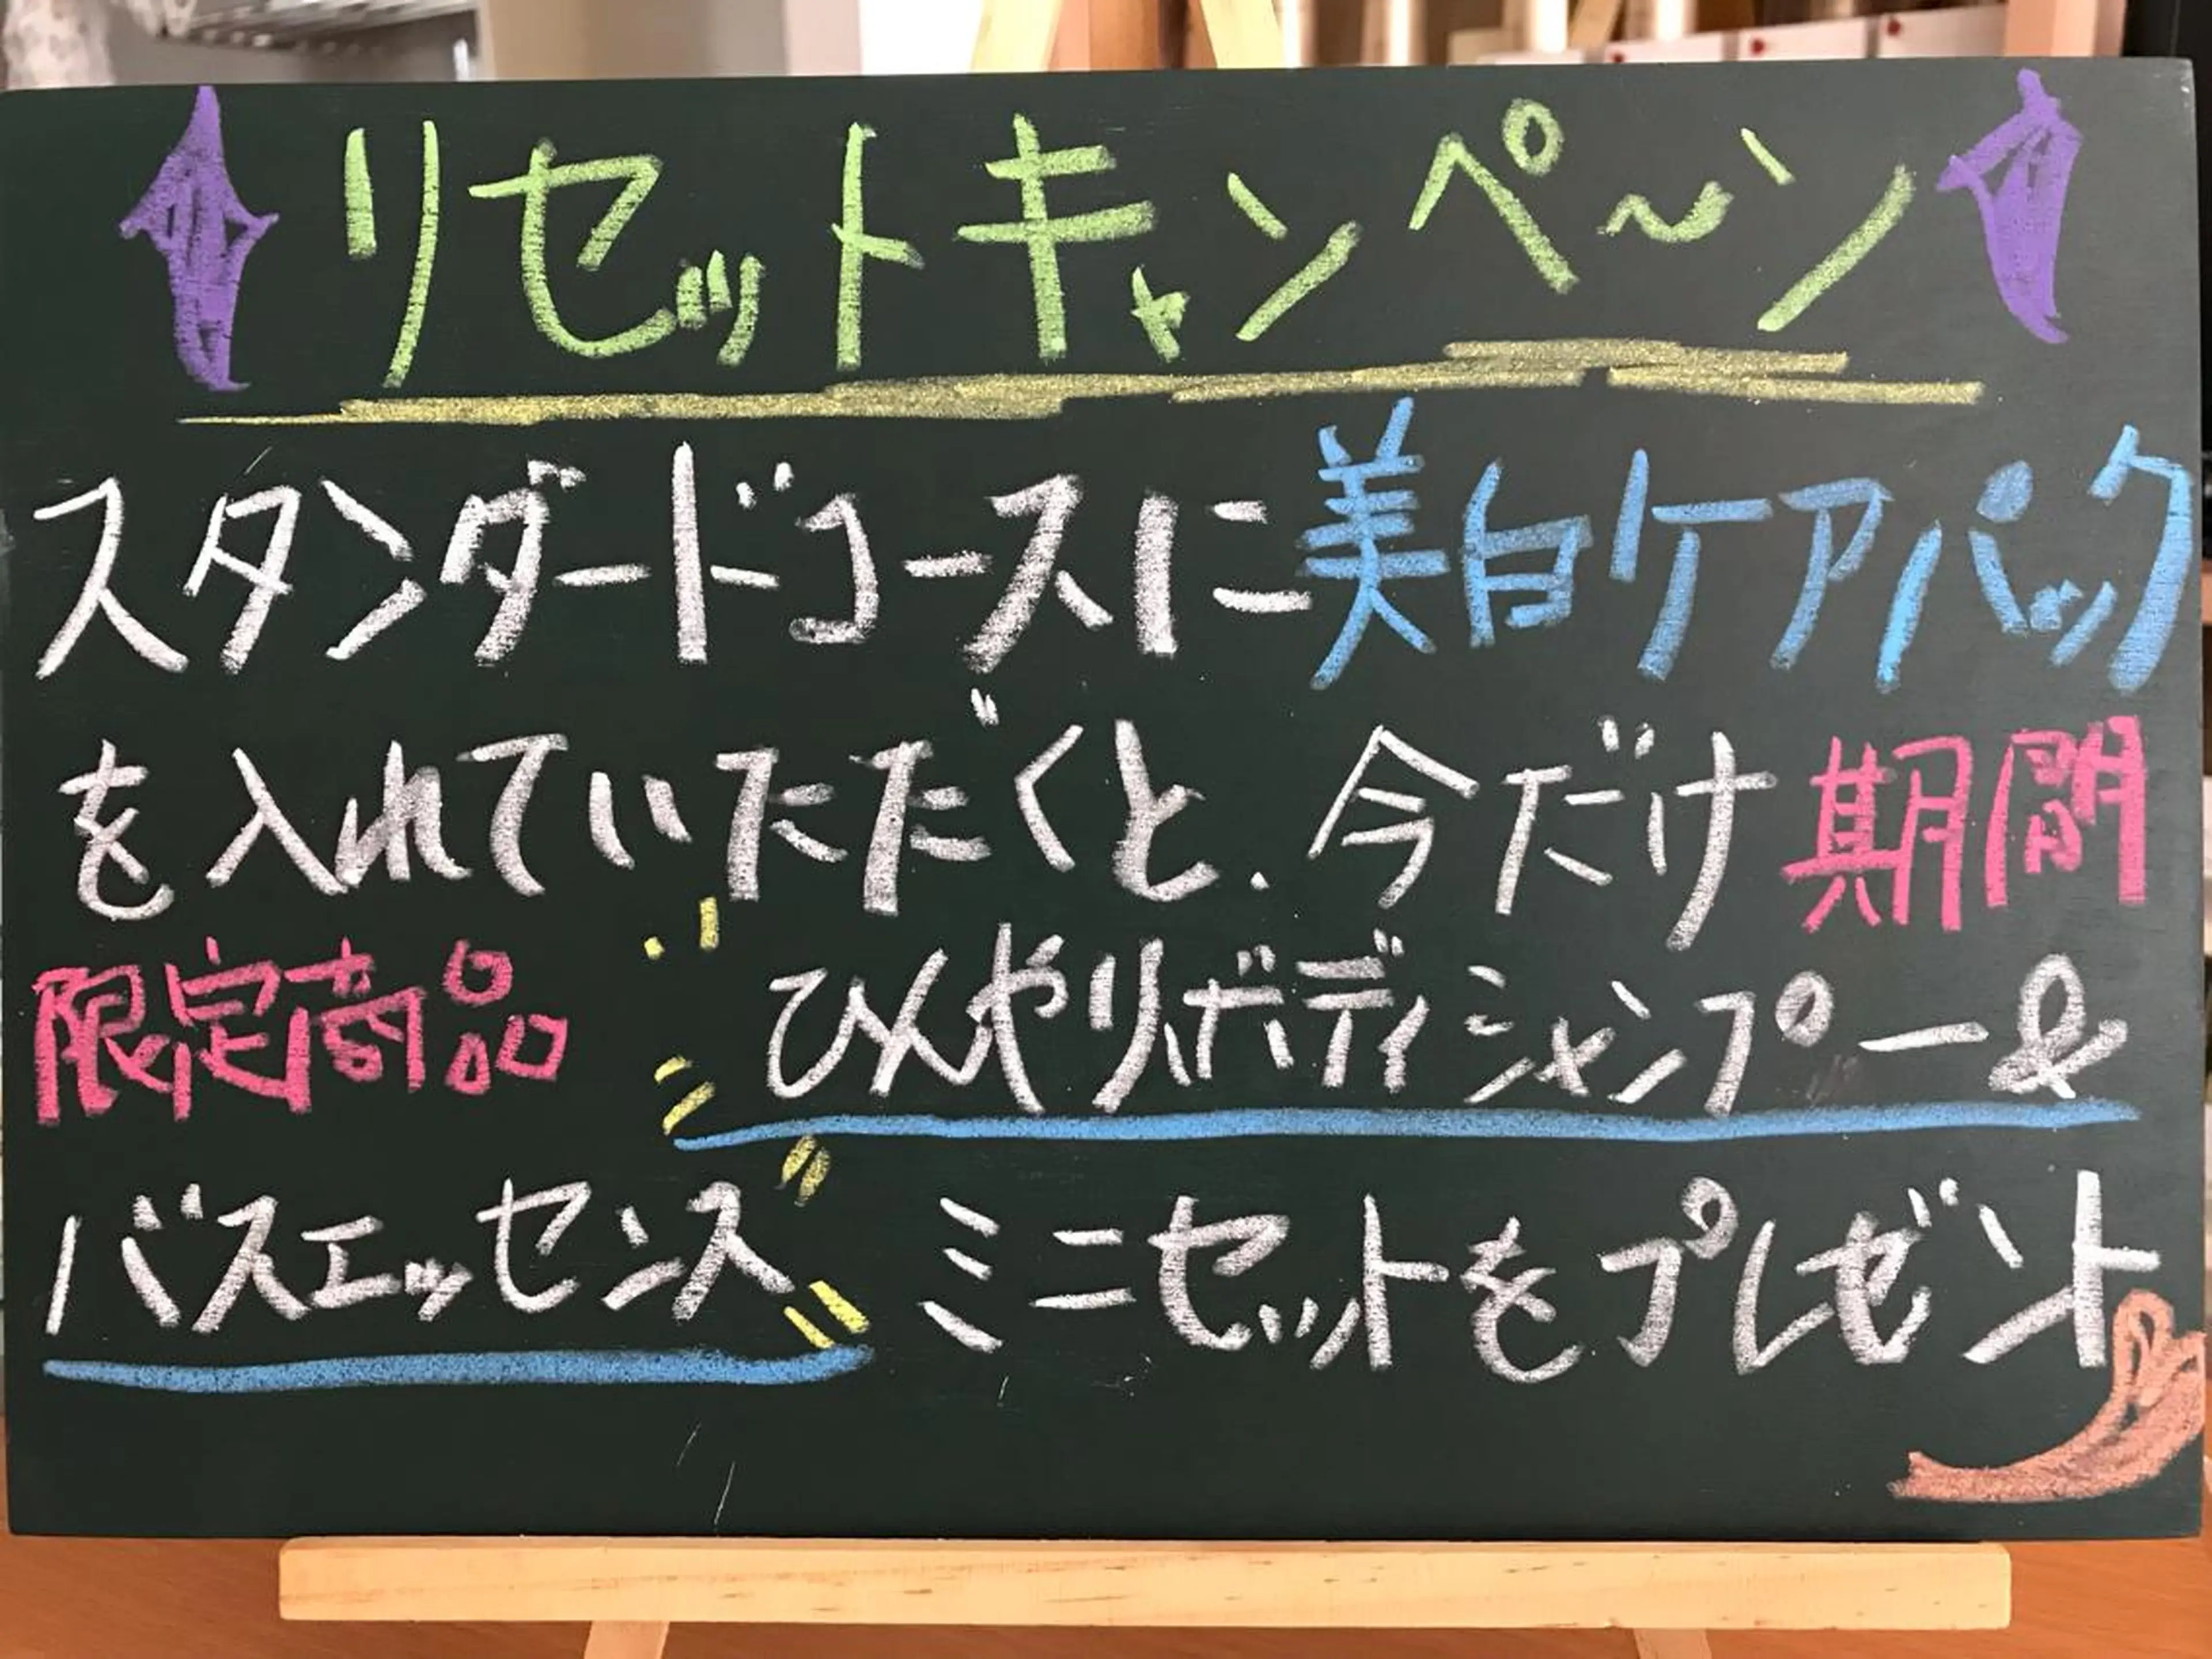 リセットキャンペ〜ン
スタンダードコースに美白ケアパック
を入れていただくと、今だけ期間
限定商品 ひんやりボディシャンプー&
バスエッセンス ミニセットをプレゼント